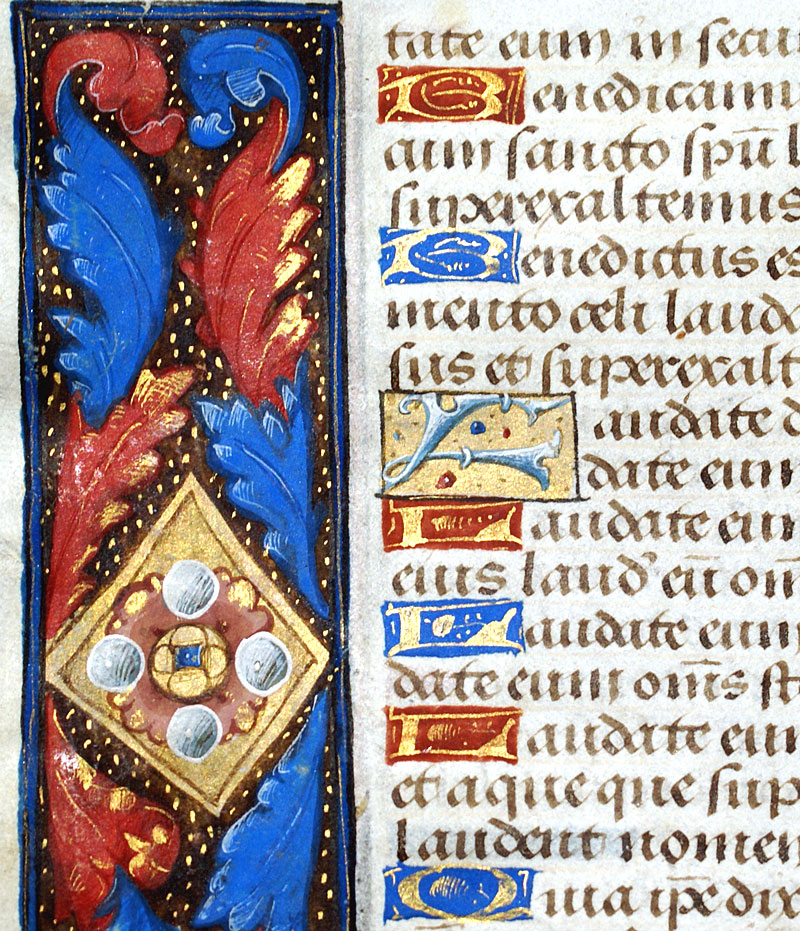 tate eum in secu
Benedicamu
cum sancto spū l
superexaltemus
Benedictus es
mento celi lauda
sus et superexalt
Laudate d
date eum
Laudate eum
eius laud' eū om
Laudate eum
date eum om̄s st
Laudate eum
et aque que sup
laudent nomen
Quia ip̄e dix